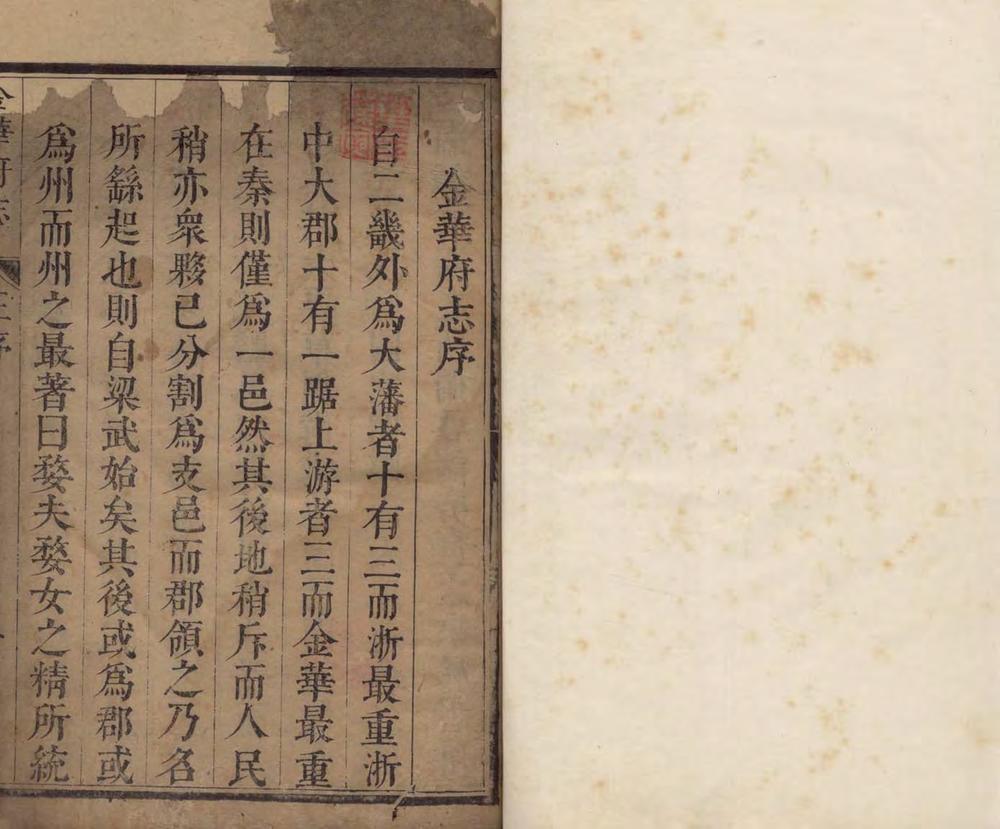 金華府志序
自二畿外爲大藩者十有三而浙最重浙
中大郡十有一踞上游者三而金華最重
在秦則僅爲一邑然其後地稍斥而人民
稍亦衆夥已分割爲支邑而郡領之乃名
所繇起也則自梁武始矣其後或爲郡或
爲州而州之最著曰婺夫婺女之精所統
金華府志 王序